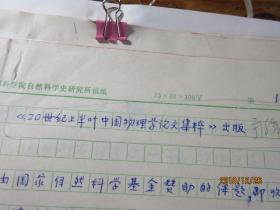 科学院自然科学史研究所稿纸 15×20=300字 第 1
《20世纪上半叶中国物理学论文集粹》出版
由国家自然科学基金赞助的课题,即收
2018/12/25